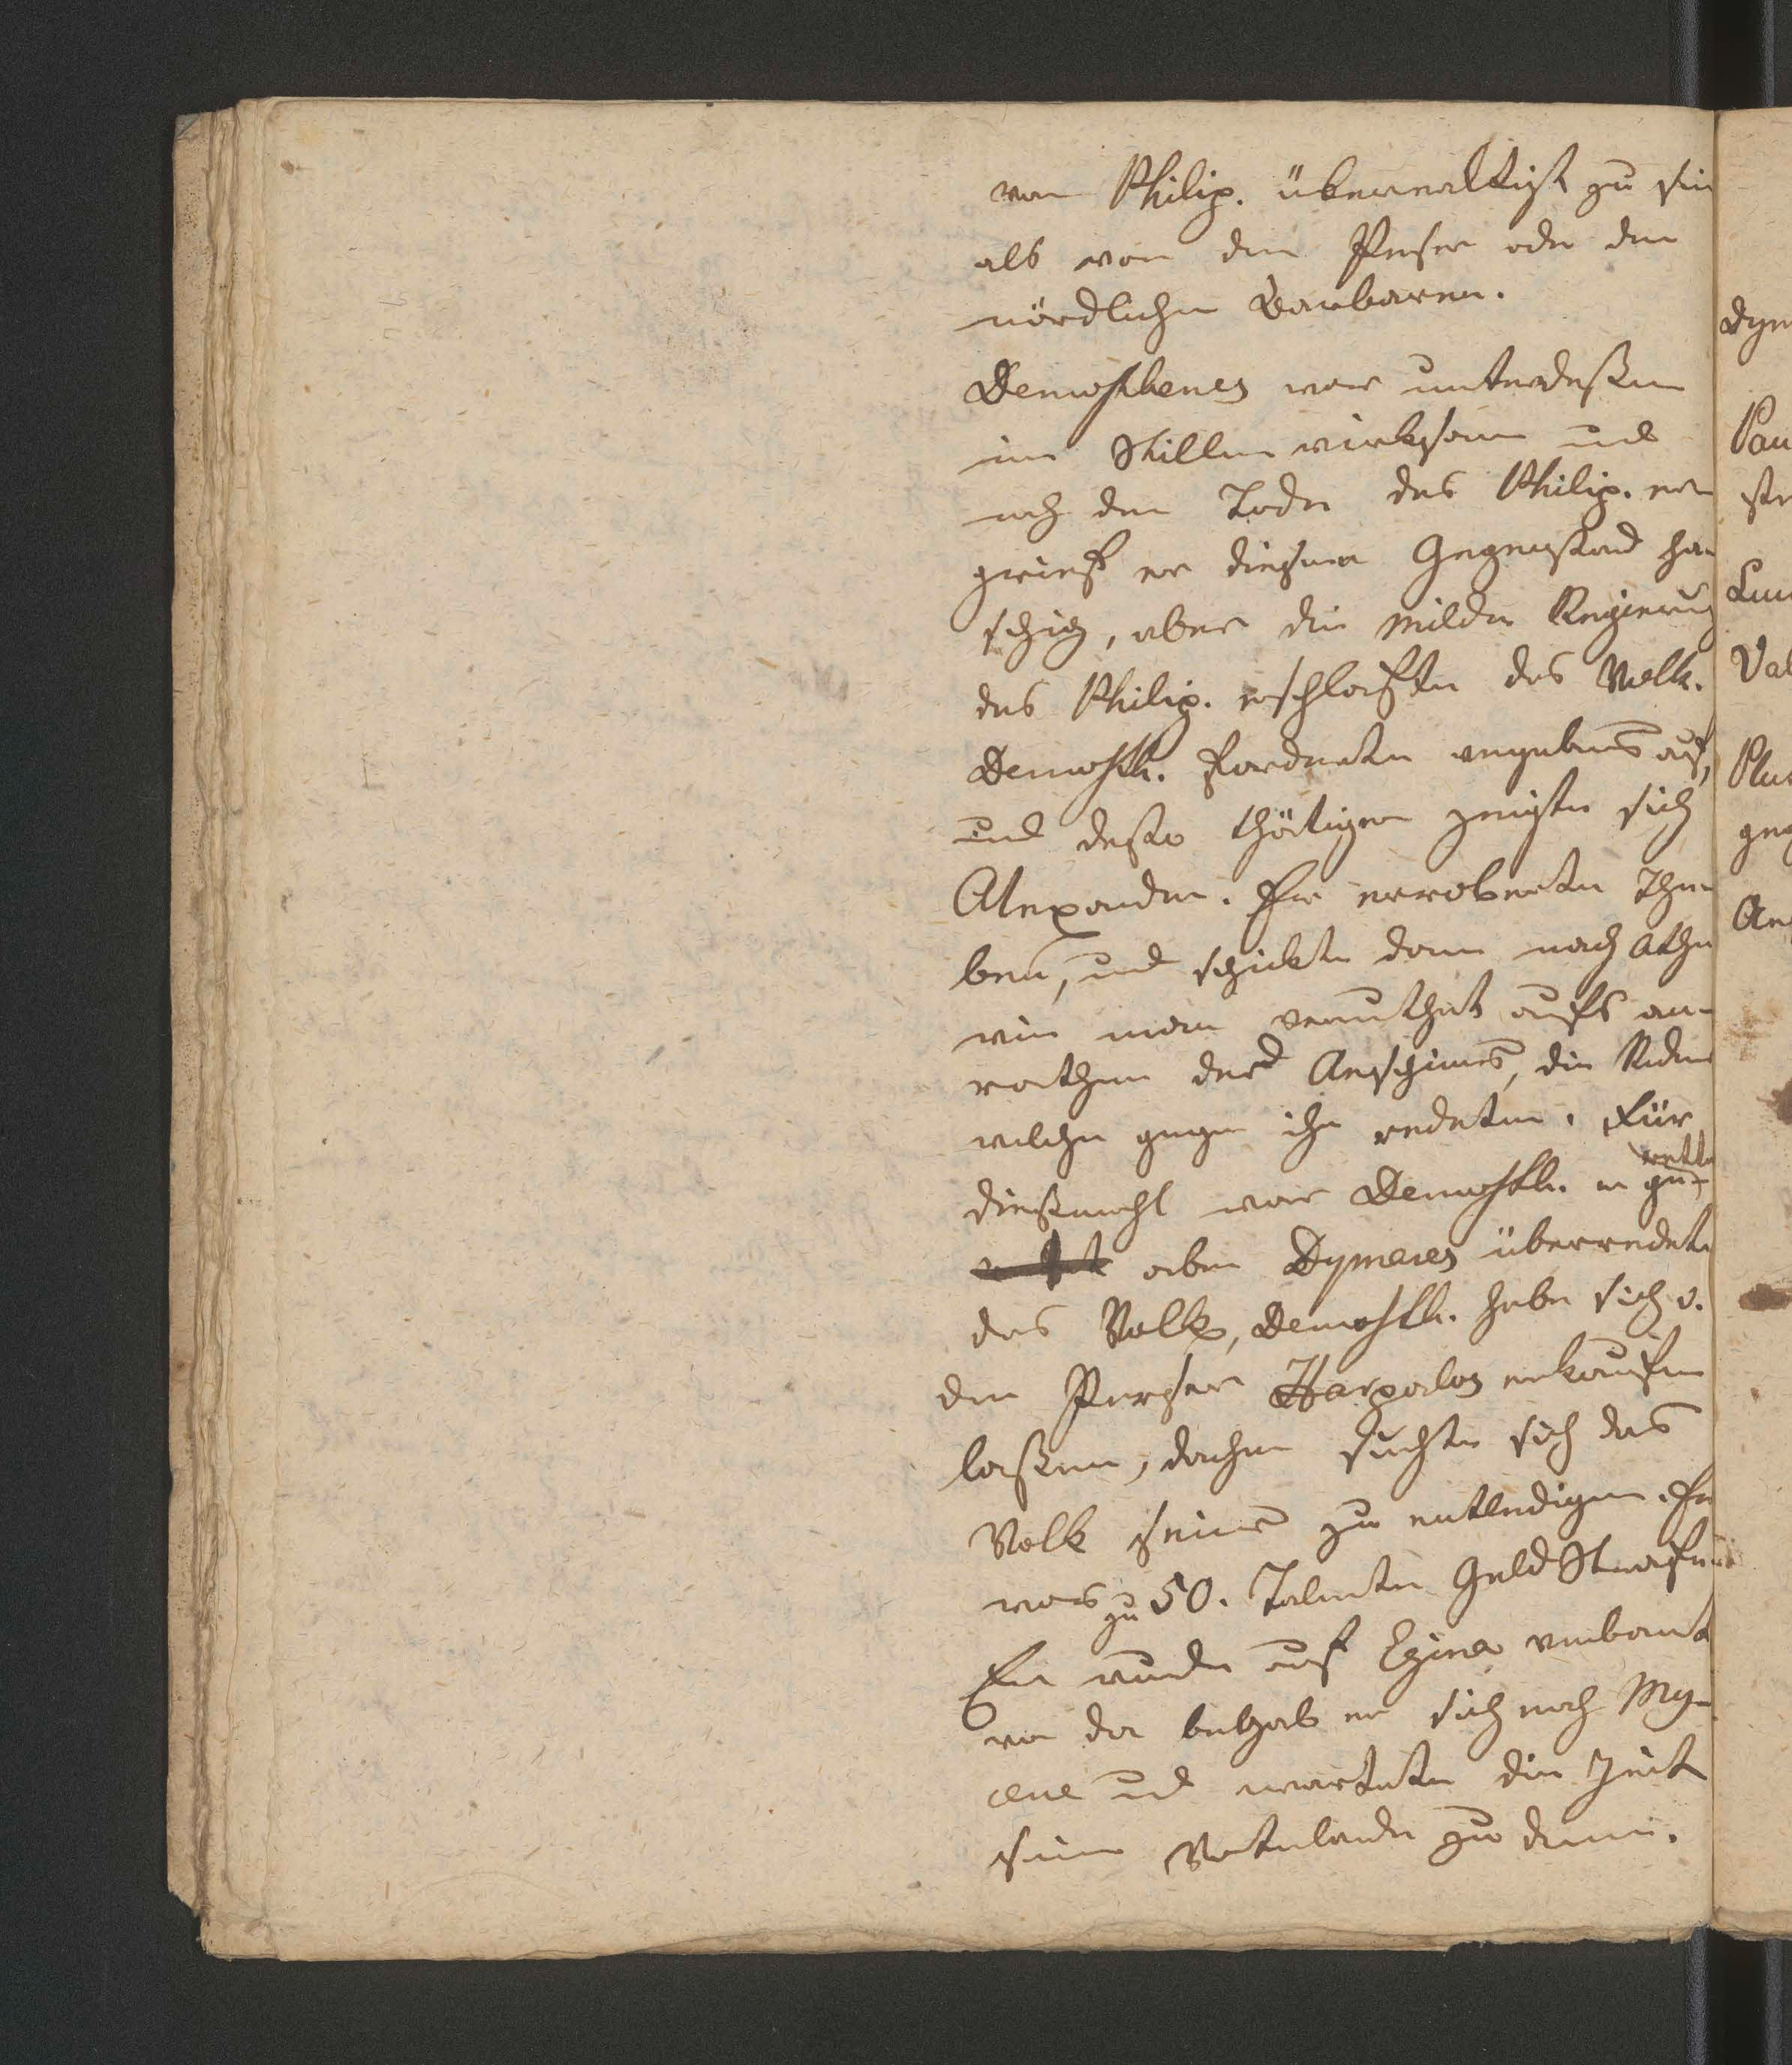 von Philip. überwältigt zu sein
als von den Perser oder den
nördlichen Barbaren.
Demosthenes war unterdeßen
im Stillen wirksam und
nach dem Tode des Philip. er
grieff er diesen Gegenstand ha
schig, aber die milde Regierung
des Philip. erschlaffte das Volk.
Demosth. forderte vergebens auf,
und desto thätiger zeigte sich
Alexander. Er eroberte The
ben, und schickte dann nach Athen
wie man vermuthet aufs an-
rathen des Aeschines, die Redner
welche gegen ihn redeten. Für
dießmahl war Demosth. er ge-
rettet
aber Dymades überredete
das Volk, Demosth. habe sich v.
den Perser Harpalos erkaufen
laßen, daher suchte sich das
Volk seiner zu entledigen. Er
war zu 50. Talente Geld Strafe
Er wurde auf Egina verbant
von da begab er sich nach My-
cene und wartete die Zeit
seinem Vaterlande zu dienen.
Dym
Pau
Luc
Val
Plut
geg